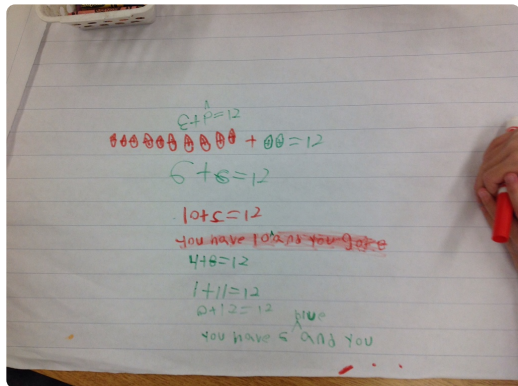 3+9=12
+ = 12
6+6=12
10+2=12
you have 10 and you got
4+8=12
1+11=12
0+12=12
blue
you have 5 and you